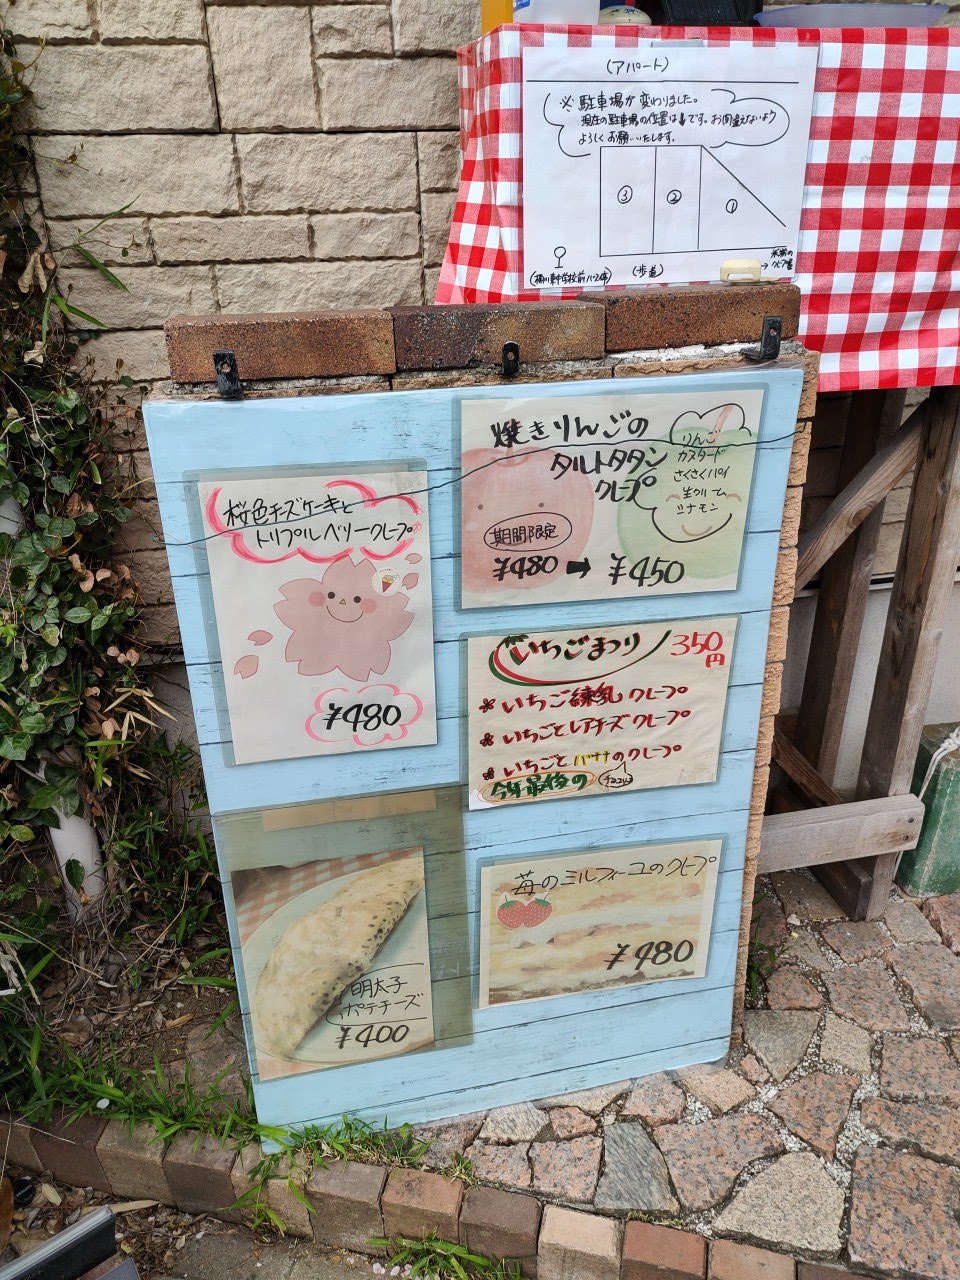 (アパート)
※駐車場が変わりました。
現在の駐車場の位置は⬇です。お間違えないよう
よろしくお願いいたします。
③
②
①
(歩道)
→クレープ屋
焼きりんごの
タルトタタン
クレープ
りんご
カスタード
さくさくパイ
生クリーム
シナモン
期間限定
¥480➡¥450
桜色チーズケーキと
トリプルベリークレープ
¥480
いちごまつり
350円
いちご練乳クレープ
いちごとレアチーズクレープ
いちごとバナナのクレープ
チョコorカスタ
今年最後の
明太子
ポテチーズ
¥400
苺のミルフィーユのクレープ
¥480